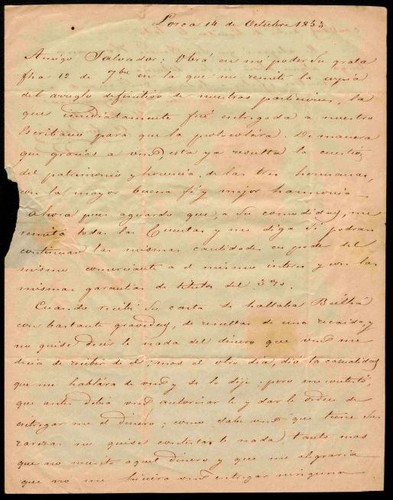 Lorca 14 de Octubre 1853
Amigo Salvador: Obra en mi poder su grata
fha 12 de 7bre en la que me remite la copia
del arreglo definitivo de nuestras particiones, la
que inmediatamente fué entregada a nuestro
Escribano para que la protocolara. De manera
que gracias a vmd, esta ya resuelta la cuestion
del patrimonio y herencia, de las tres hermanas,
con la mayor buena fé y mejor harmonia.
Ahora pues aguardo que, a su comodidad, me
remita todas las Cuentas y me diga si podran
continuar las mismas cantidades en poder del
mismo comerciante a el mismo interes y con las
mismas garantias de titulos del 3 %.
Cuando recibí su carta se hallaba
con bastante gravedad, de resultas de una
no quise decirle nada del dinero que vmd me
decia de recibir de el; mas el otro dia, dio la casualidad
que me hablara de vmd y se lo dije; pero me contestó,
que antes debia vmd autorizarle y dar la orden de
entregarme el dinero; como sabe vmd que tiene sus
no quise contestarle nada, tanto mas
que no necesito aquel dinero y que me alegraria
que no me hiciera vmd entregar ninguno